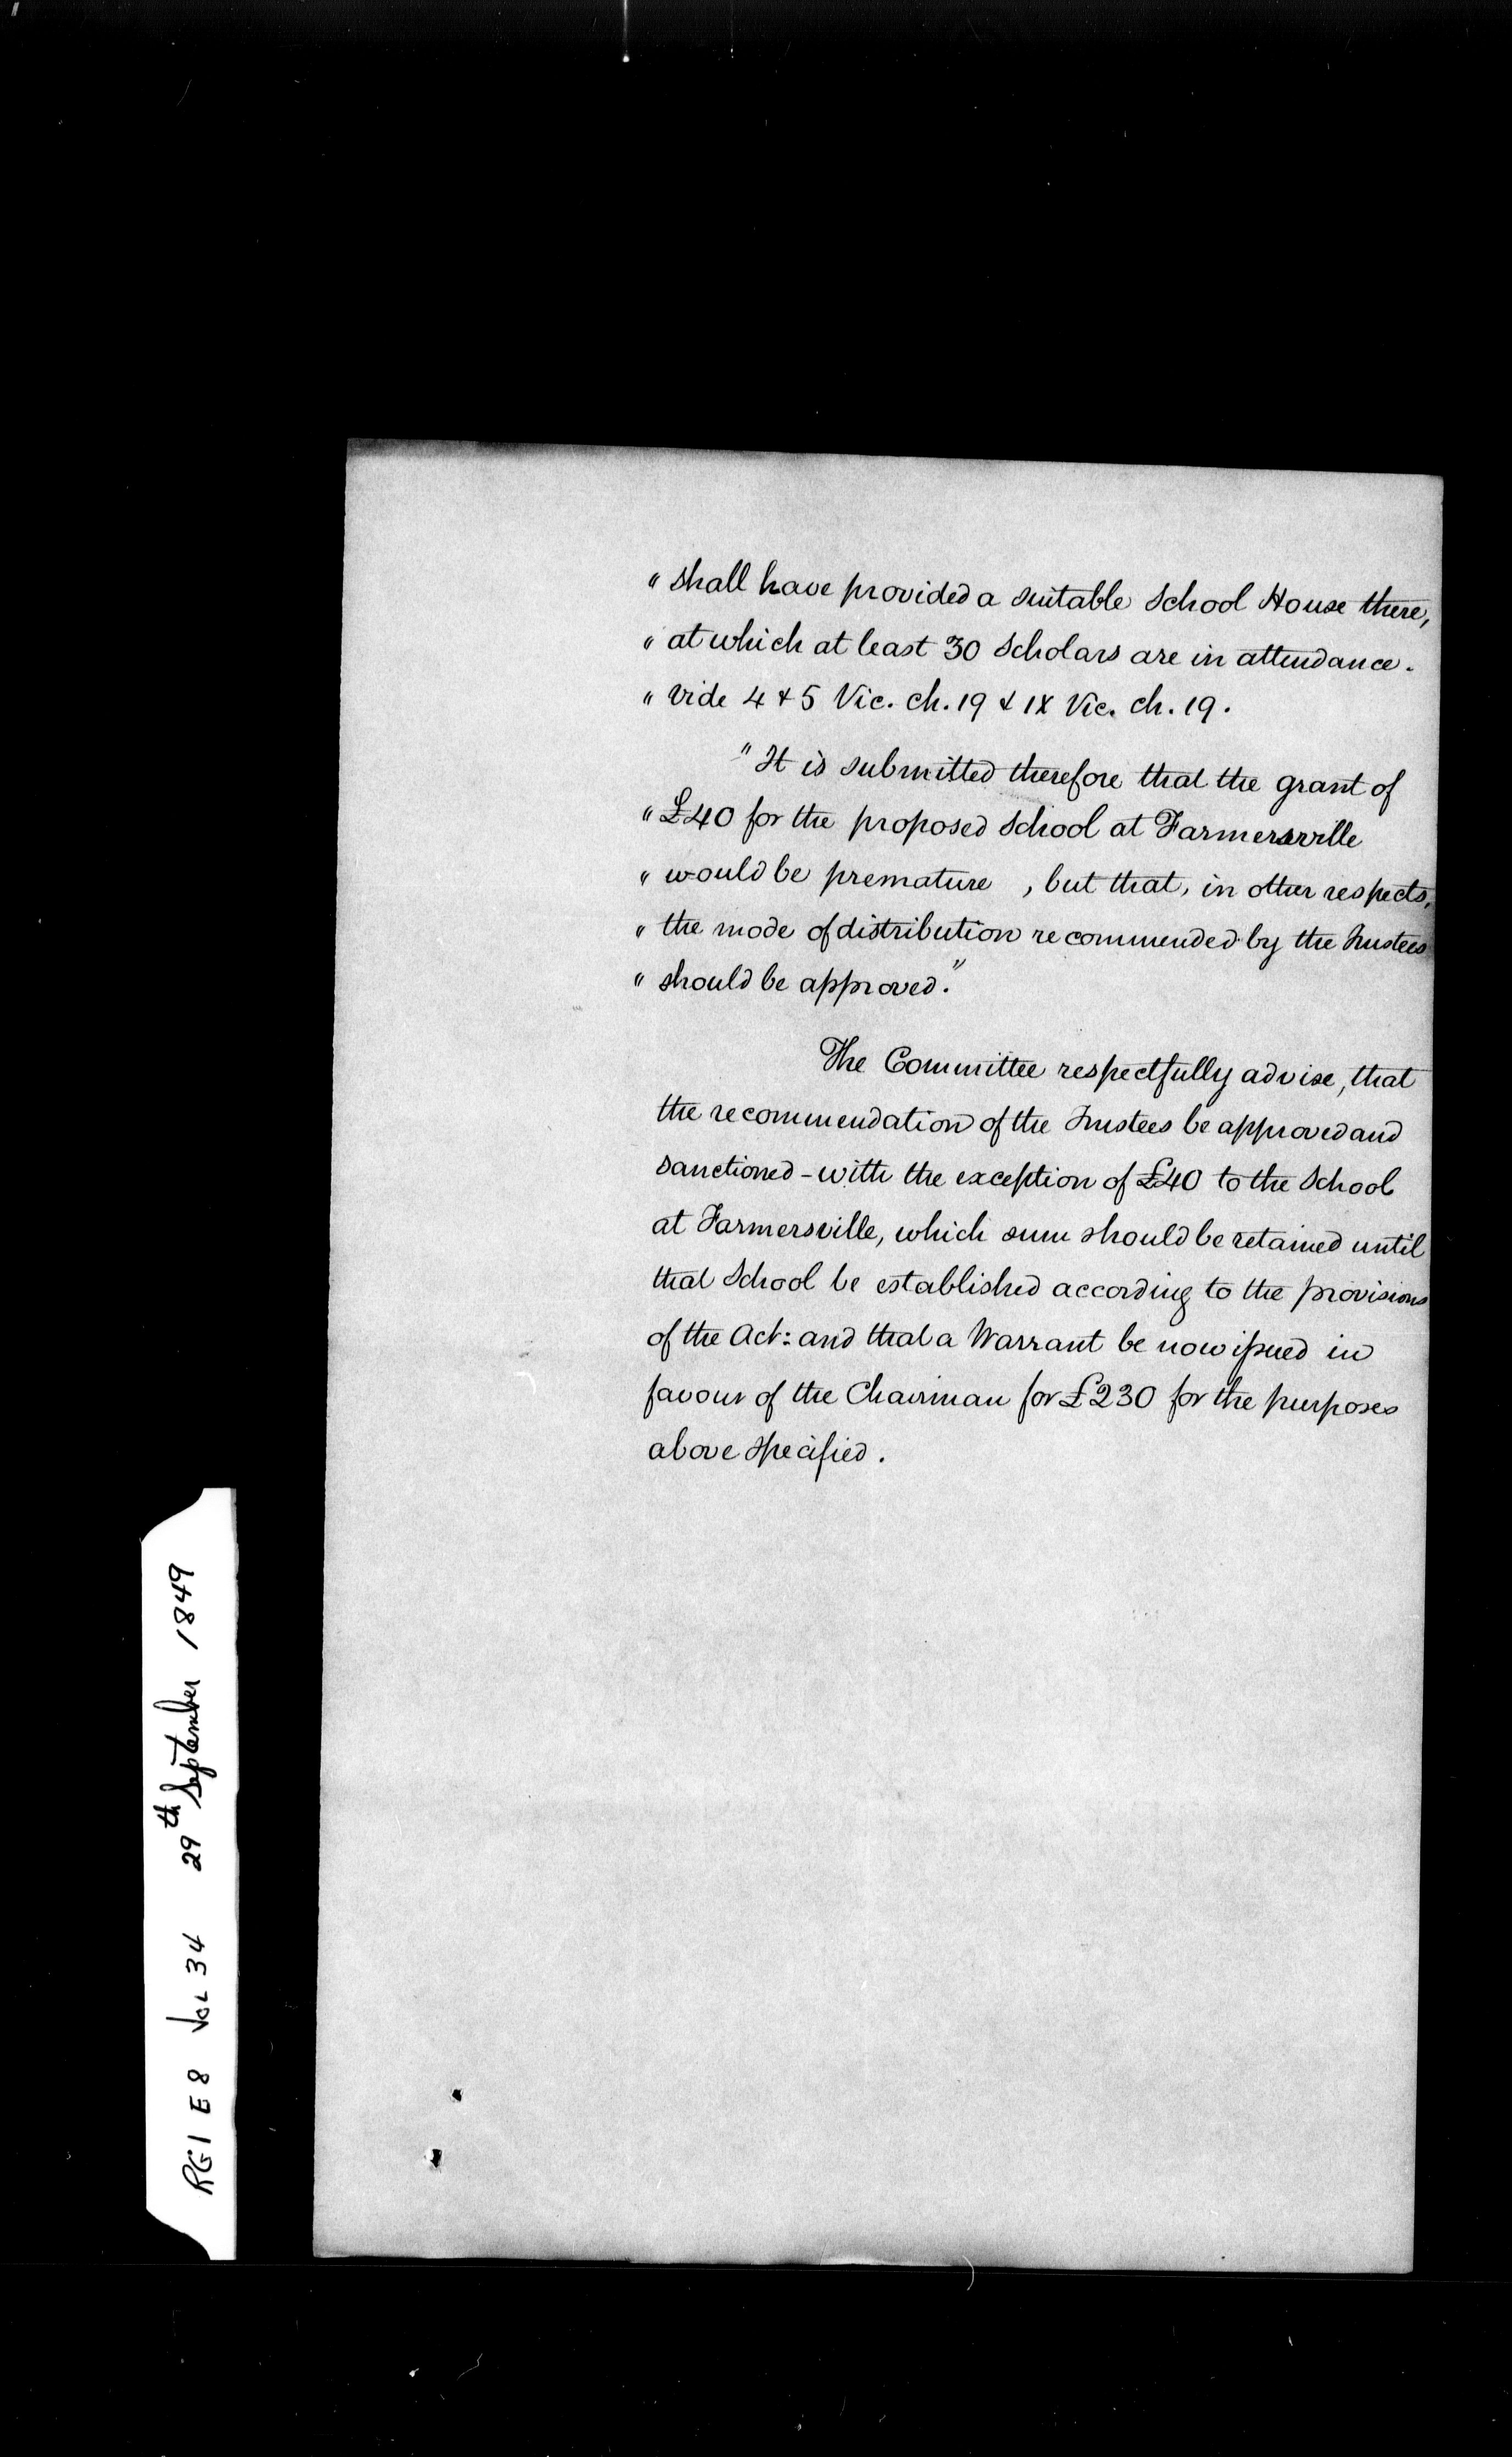 " shall have provided a suitable School House there,
" at which at least 30 Scholars are in attendance.
" vide 4 & 5 Vic. ch. 19 & IX Vic. ch. 19.
" It is submitted therefore that the grant of
" £40 for the proposed School at Farmersville
" would be premature , but that, in other respects,
" the mode of distribution recommended by the Trustees
" should be approved."
The Committee respectfully advise, that
the recommendation of the Trustees be approved and
sanctioned - with the exception of £40 to the School
at Farmersville, which sum should be retained until
that School be established according to the provisions
of the Act: and that a Warrant be now issued in
favour of the Chairman for £230 for the purposes
above specified.
RG1 E8 Vol 34 29th September 1849